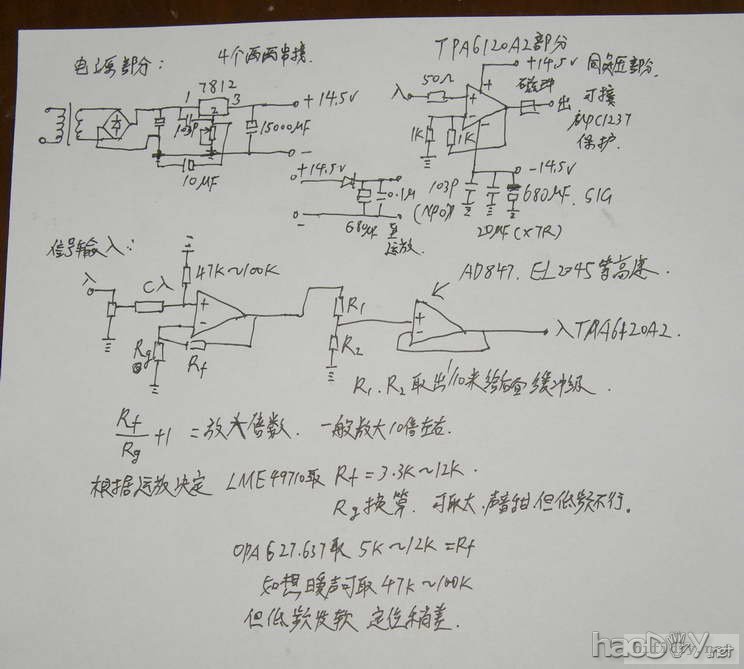 电源部分: 4个两两串接. TPA6120A2部分
7812
1 3 +14.5V
2
103P 15000μF
10μF −
+14.5V 同负压部分.
50Ω 磁珠
入 + 出 可接
− μPC1237
1K 1K 保护.
−14.5V
103P 680μF. SIG
(NPO) 20μF (X7R)
+14.5V
0.1μ
− 680μF 至
运放.
信号输入:
入 C入 47K~100K
+
−
Rg Rf
R1
R2
AD847. EL2045等高速.
+
−
入TPA6120A2.
R1. R2取出1/10来给后面缓冲级.
Rf/Rg +1 =放大倍数. 一般放大10倍左右.
根据运放决定 LME49710取 Rf=3.3K~12K.
Rg换算. 可取大.声音甜但低频不行。
OPA627.637取 5K~12K=Rf
如想暖声可取 47K~100K
但低频发软 定位稍差.
haoDIY.net